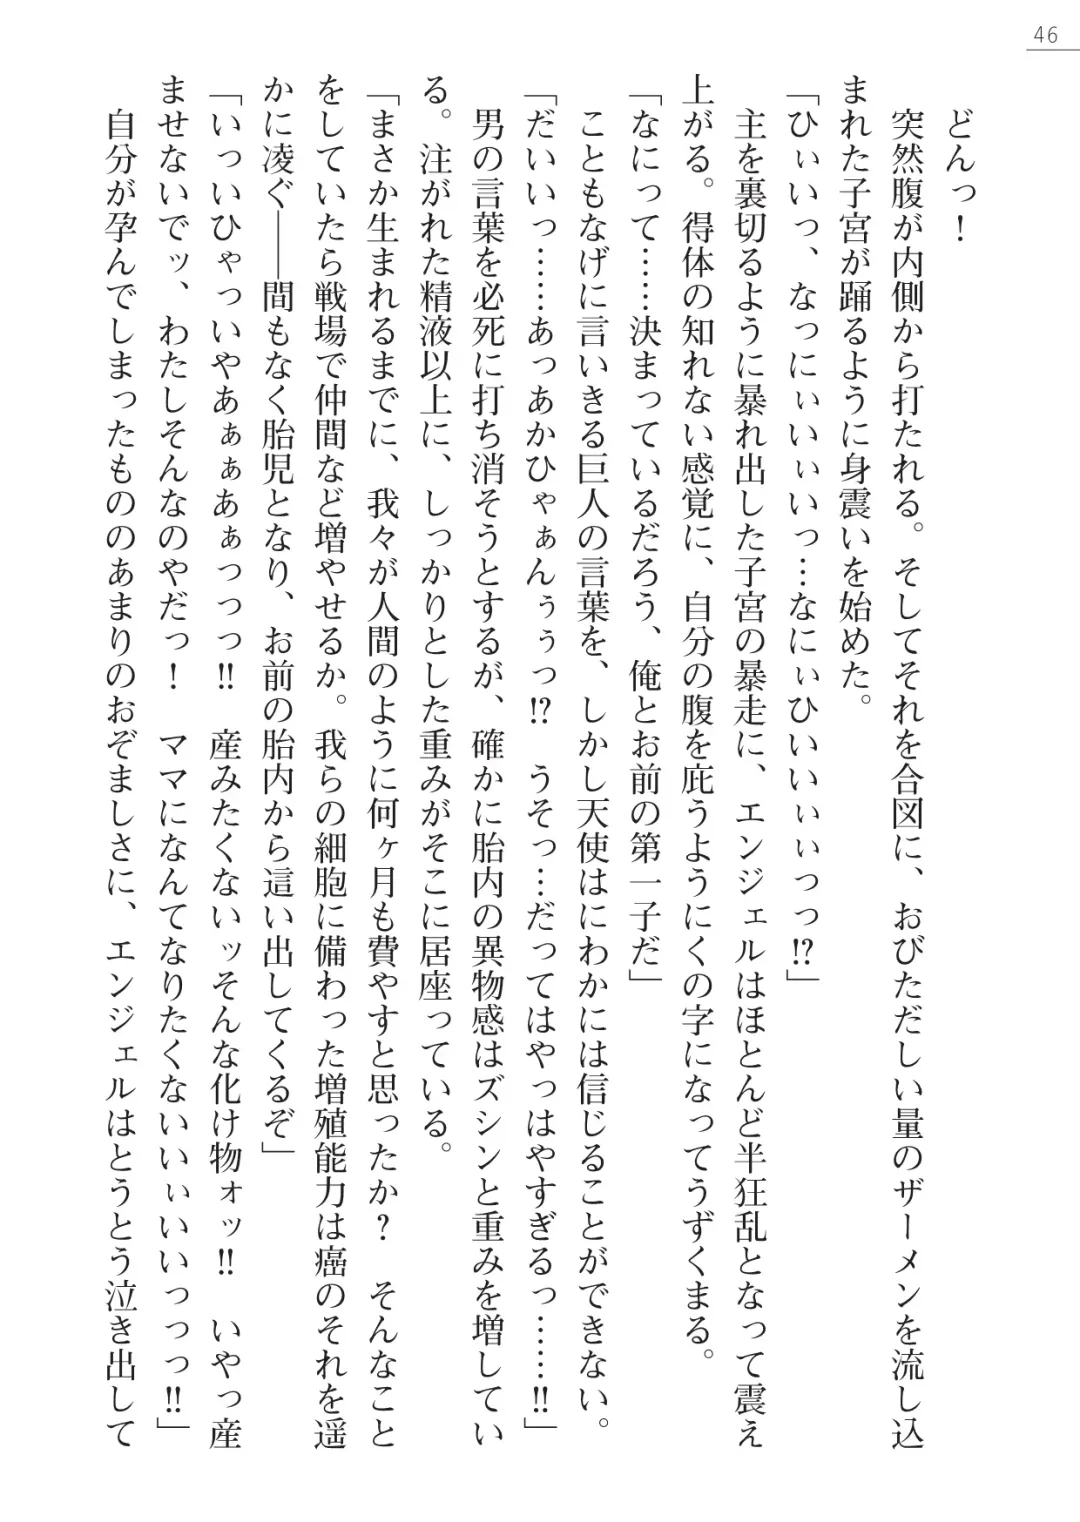 46
どんっ！
突然腹が内側から打たれる。そしてそれを合図に、おびただしい量のザーメンを流し込
まれた子宮が踊るように身震いを始めた。
「ひぃいっ、なっにぃいぃいっ…なにぃひいいぃぃっっ!?」
主を裏切るように暴れ出した子宮の暴走に、エンジェルはほとんど半狂乱となって震え
上がる。得体の知れない感覚に、自分の腹を庇うようにくの字になってうずくまる。
「なにって……決まっているだろう、俺とお前の第一子だ」
こともなげに言いきる巨人の言葉を、しかし天使はにわかには信じることができない。
「だいいっ……あっあかひゃぁんぅぅっ!?　うそっ…だってはやっはやすぎるっ……!!」
男の言葉を必死に打ち消そうとするが、確かに胎内の異物感はズシンと重みを増してい
る。注がれた精液以上に、しっかりとした重みがそこに居座っている。
「まさか生まれるまでに、我々が人間のように何ヶ月も費やすと思ったか？　そんなこと
をしていたら戦場で仲間など増やせるか。我らの細胞に備わった増殖能力は癌のそれを遥
かに凌ぐ――間もなく胎児となり、お前の胎内から這い出してくるぞ」
「いっいひゃっいやあぁぁあぁっっっ!!　産みたくないッそんな化け物ォッ!!　いやっ産
ませないでッ、わたしそんなのやだっ！　ママになんてなりたくないいぃいいっっっ!!」
自分が孕んでしまったもののあまりのおぞましさに、エンジェルはとうとう泣き出して